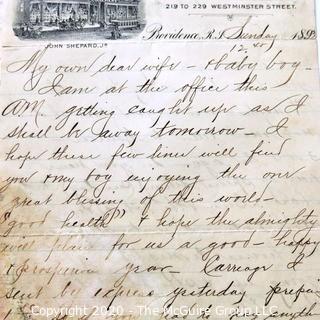 219 TO 229 WESTMINSTER STREET.
JOHN SHEPARD, Jr.
Providence, R.I. Sunday 189
My own dear wife - & baby boy -
I am at the office this
A.M. getting caught up as I
shall be away tomorrow - I
hope these few lines will find
you & my boy enjoying the one
great blessing of this world -
"good health" & hope the almighty
will for us a good - happy
& prosperous year - Carriage I
sent by express yesterday
Copyright © 2020 - The McGuire Group LLC